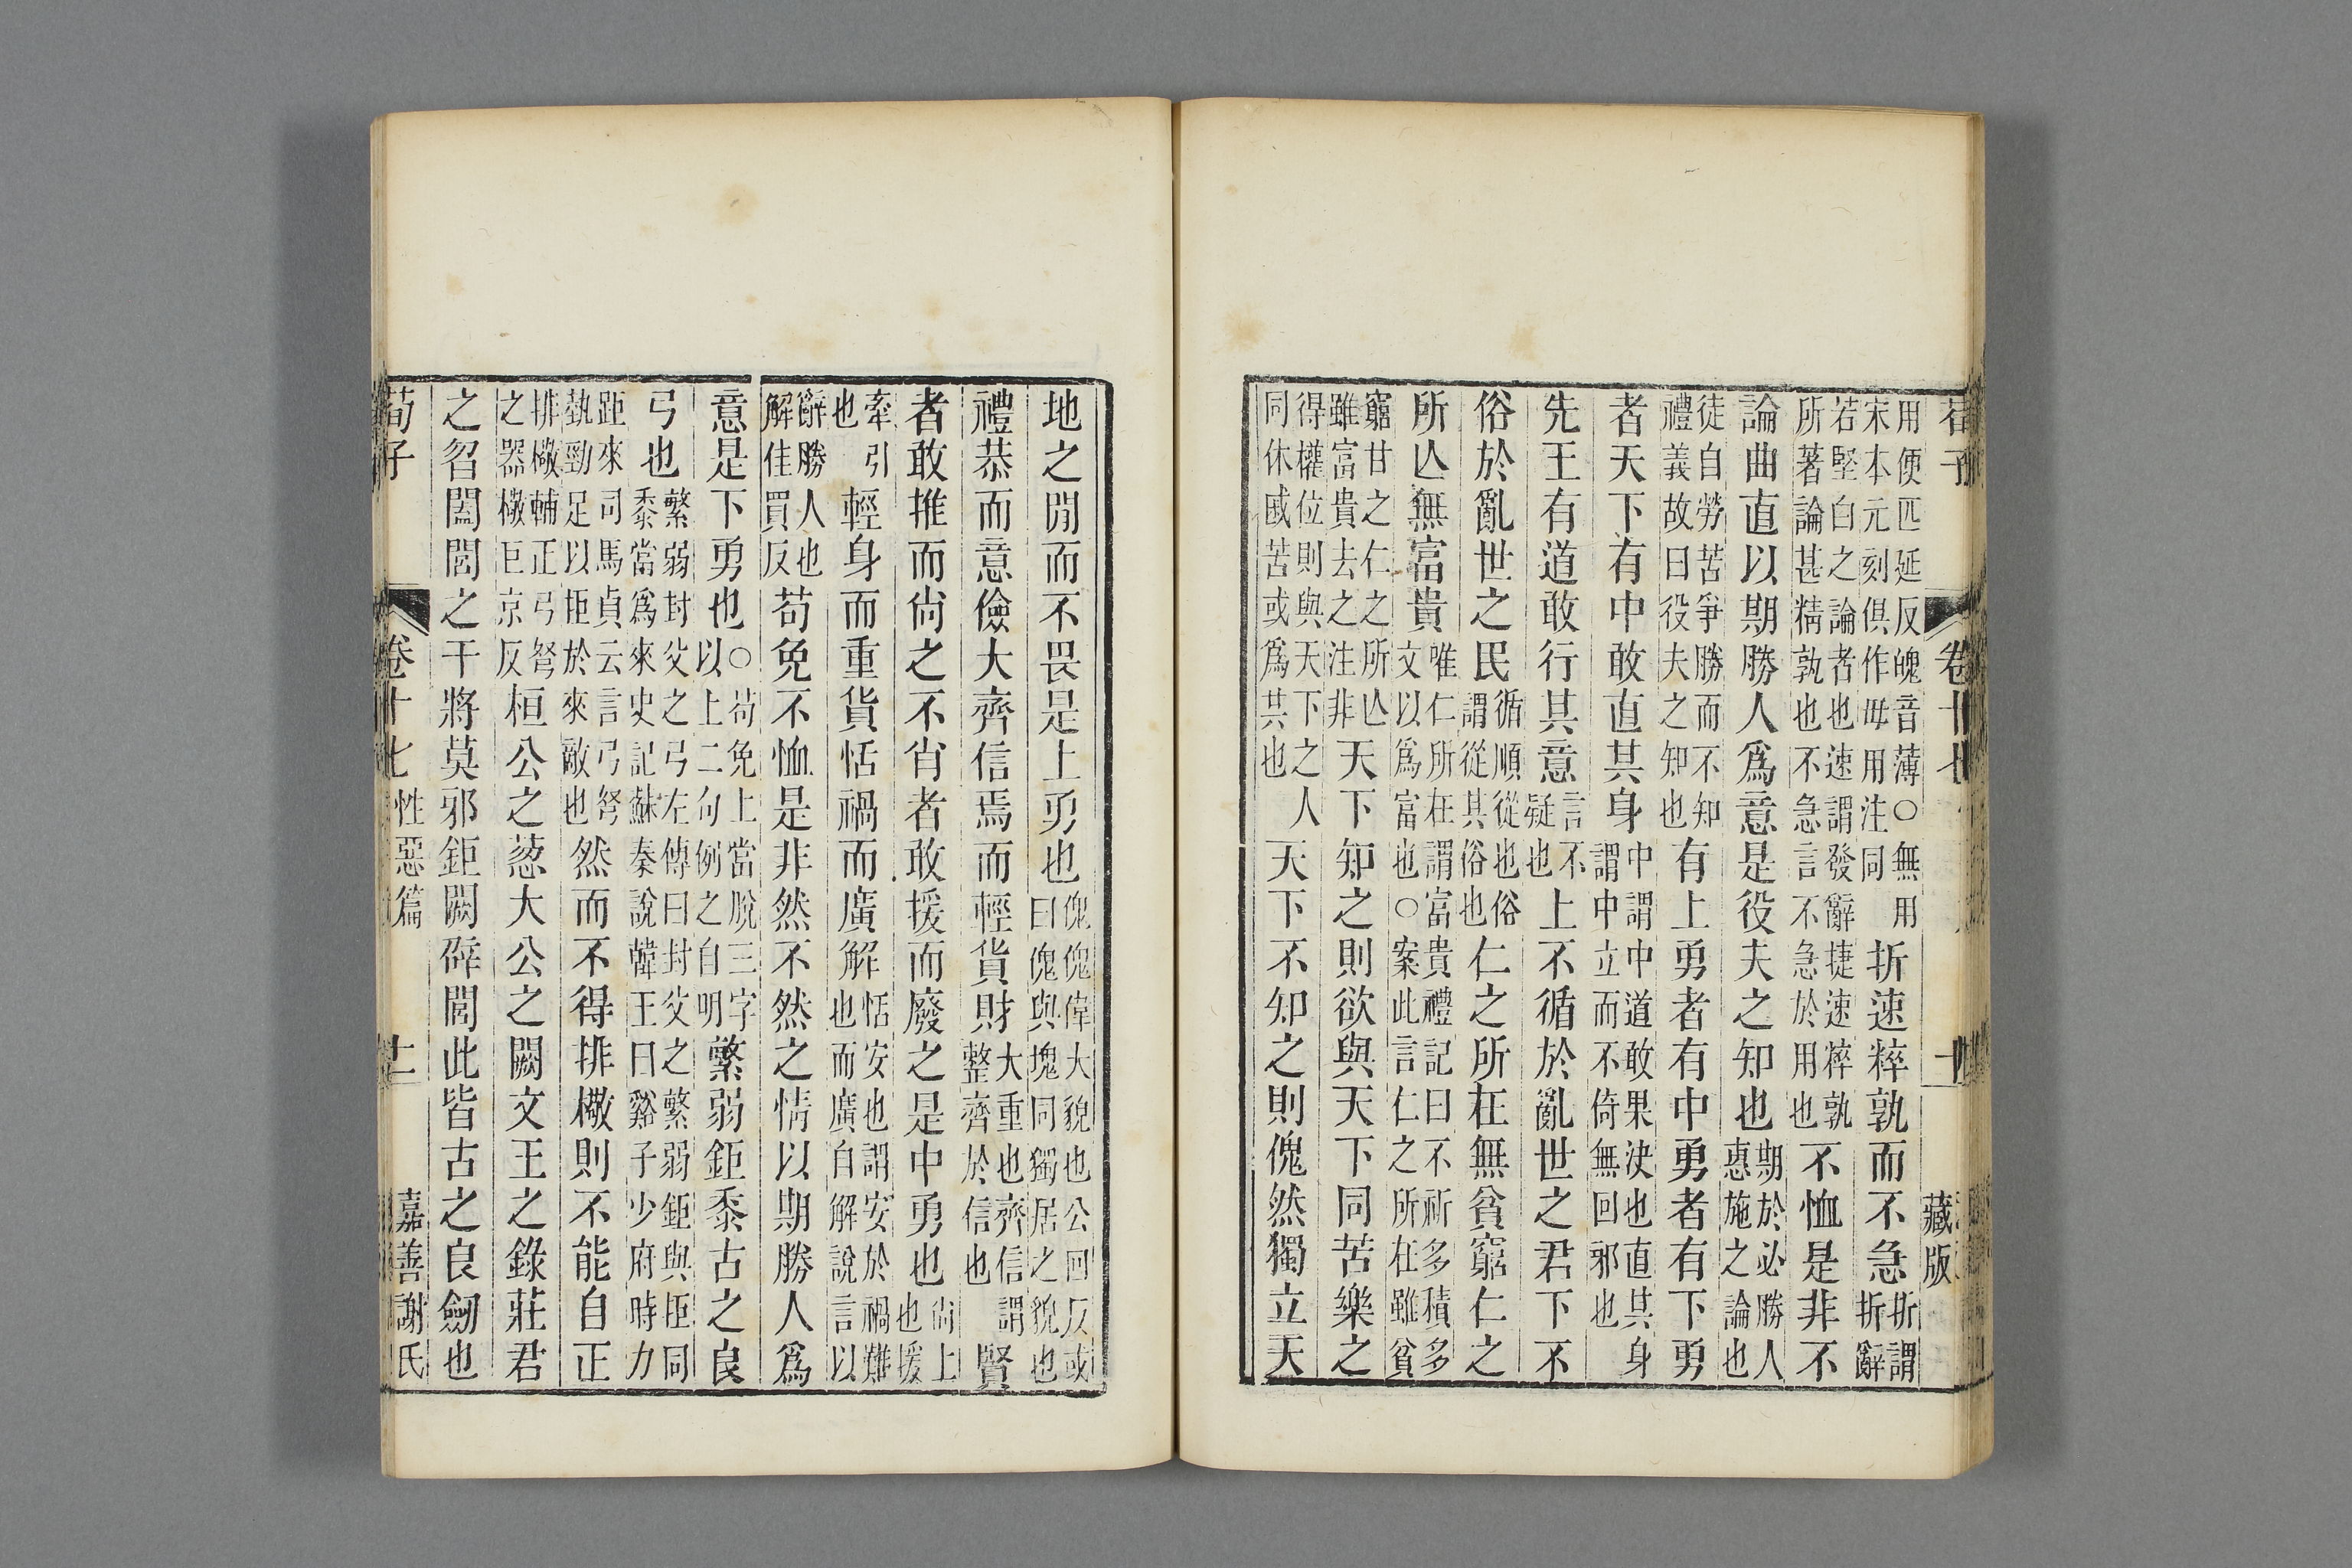 荀子　卷十七　藏版
用便匹延反魄音薄○無用宋本元刻俱作毋用注同析速粹孰而不急析謂析辭
若堅白之論者也速謂發辭捷速粹孰所著論甚精孰也不急言不急於用也不恤是非不
論曲直以期勝人爲意是役夫之知也期於必勝人惠施之論也
徒自勞苦爭勝而不知禮義故曰役夫之知也有上勇者有中勇者有下勇
者天下有中敢直其身中謂中道敢果決也直其身謂中立而不倚無回邪也
先王有道敢行其意言不疑也上不循於亂世之君下不
俗於亂世之民循順從也俗謂從其俗也仁之所在無貧窮仁之
所亾無富貴唯仁所在謂富貴禮記曰不祈多積多文以爲富也○案此言仁之所在雖貧
窮甘之仁之所亾雖富貴去之注非天下知之則欲與天下同苦樂之
得權位則與天下之人同休戚苦或爲共也天下不知之則傀然獨立天
地之閒而不畏是上勇也傀傀偉大貌也公回反或曰傀與塊同獨居之貌也
禮恭而意儉大齊信焉而輕貨財大重也齊信謂整齊於信也賢
者敢推而尙之不肖者敢援而廢之是中勇也尙上也援
牽引也輕身而重貨恬禍而廣解恬安也謂安於禍難也而廣自解說言以
辭勝人也解佳買反苟免不恤是非然不然之情以期勝人爲
意是下勇也○苟免上當脫三字以上二句例之自明繁弱鉅黍古之良
弓也繁弱封父之弓左傳曰封父之繁弱鉅與拒同黍當爲來史記蘇秦說韓王曰谿子少府時力
距來司馬貞云言弓弩埶勁足以拒於來敵也然而不得排檠則不能自正
排檠輔正弓弩之器檠巨京反桓公之蔥大公之闕文王之錄莊君
之曶闔閭之干將莫邪鉅闕辟閭此皆古之良劒也
荀子　卷十七　性惡篇　十二　嘉善謝氏